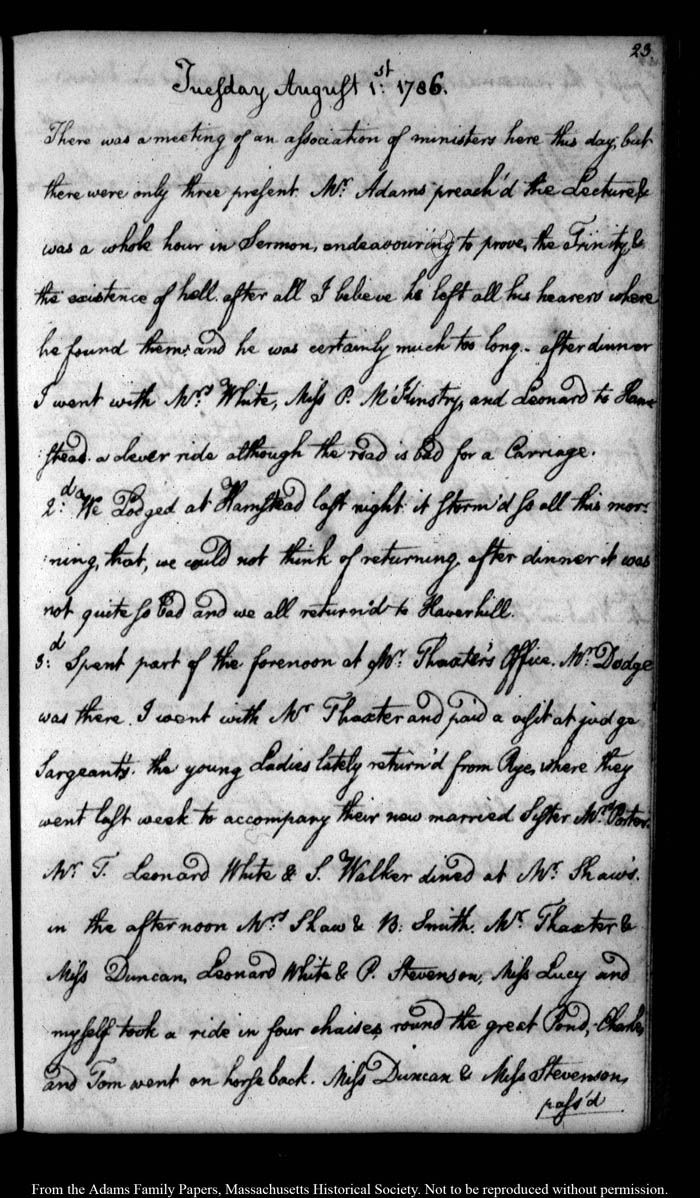 23
Tuesday August 1:st 1786.
There was a meeting of an association of ministers here this day, but
there were only three present. Mr. Adams preach'd the Lecture &
was a whole hour in Sermon, endeavouring to prove, the Trinity, &
the existence of hell. after all I believe he left all his hearers where
he found them: and he was certainly much too long. - after dinner
I went with Mrs. White, Miss P. M'Kinstry, and Leonard to Ham-
:stead. a clever ride although the road is bad for a Carriage.
2:d We Lodged at Hamstead last night: it storm'd so all this mor:
:ning, that, we could not think of returning, after dinner it was
not quite so bad and we all return'd to Haverhill.
3:d Spent part of the forenoon at Mr. Thaxter's Office. Mr. Dodge
was there. I went with Mr. Thaxter and paid a visit at judge
Sargeant's. the young Ladies lately return'd from Rye, where they
went last week to accompany their new married Sister Mrs. Porter.
Mr. T. Leonard White & S. Walker dined at Mr. Shaw's.
in the afternoon Mrs. Shaw & B. Smith. Mr. Thaxter &
Miss Duncan, Leonard White & P. Stevenson, Miss Lucy and
myself took a ride in four chaises, round the great Pond, Charles
and Tom went on horse back. Miss Duncan & Miss Stevenson,
pass'd
From the Adams Family Papers, Massachusetts Historical Society. Not to be reproduced without permission.